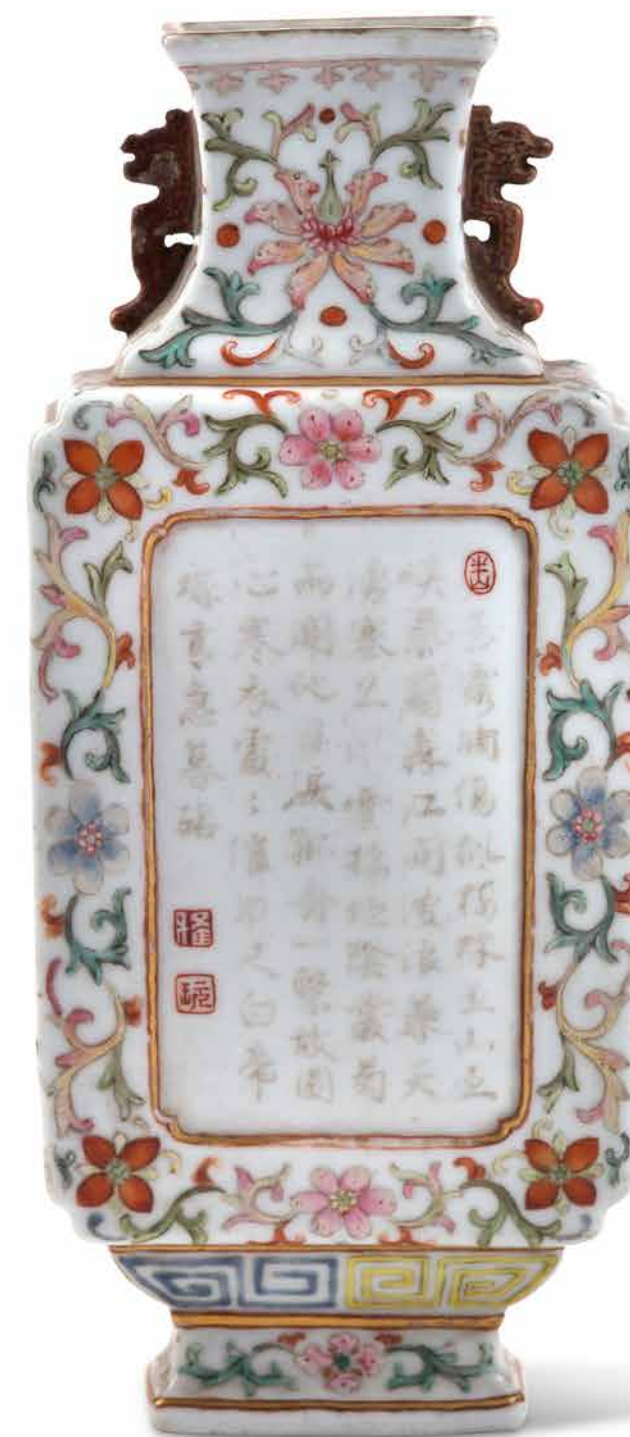 玉露凋傷楓樹林巫山巫
峽氣蕭森江間波浪兼天
湧塞上風雲接地陰叢菊
兩開他日淚孤舟一繫故園
心寒衣處〻催刀尺白帝
城高急暮砧